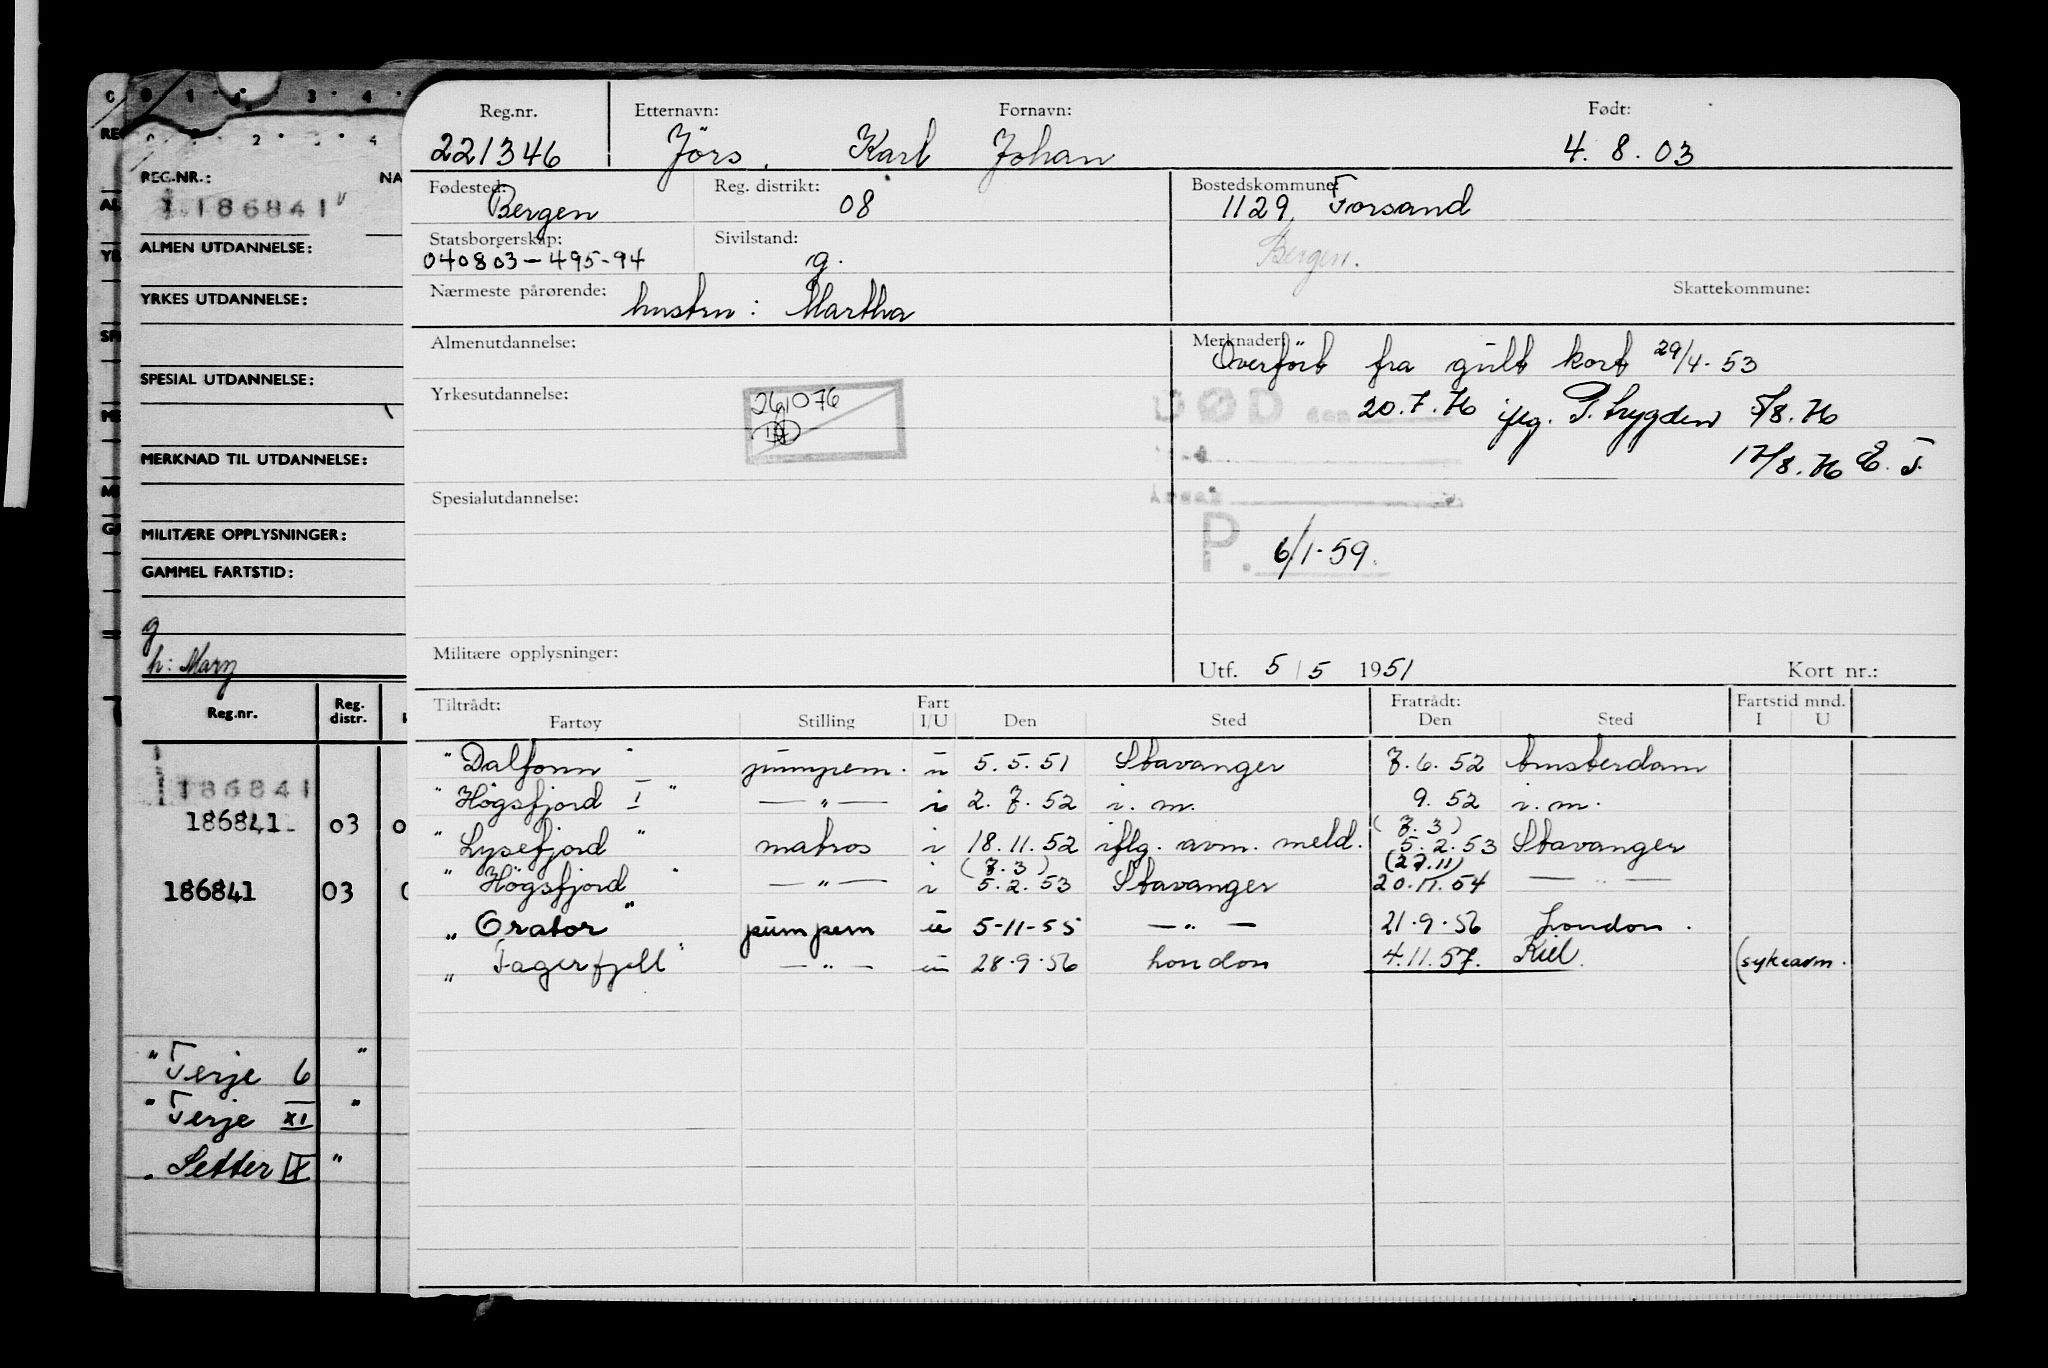 Reg.nr. Etternavn: Fornavn: Født:
221346 Jörs, Karl Johan 4.8.03
Fødested: Reg. distrikt: Bostedskommune:
Bergen 08 1129, Forsand
Statsborgerskap: Sivilstand: Bergen.
040803-495-94 g.
Nærmeste pårørende: Skattekommune:
hustru: Martha
Almenutdannelse: Merknader:
Overført fra gult kort 29/4-53
Yrkesutdannelse:
261076
DØD den 20.7.76 iflg. P. trygden 5/8.76
17/8.76 E. T.
Årsak
Spesialutdannelse:
P. 6/1-59.
Militære opplysninger:
Utf. 5/5 1951 Kort nr.:
Tiltrådt: Fart Fratrådt: Fartstid mnd.
Fartøy Stilling I/U Den Sted Den Sted I U
"Dalfonn" pumpem. u 5.5.51 Stavanger 7.6.52 Amsterdam
"Högsfjord I" —"— i 2.7.52 i.m. 9.52 i.m.
(7.3)
"Lysefjord" matros i 18.11.52 iflg. avm. meld. 5.2.53 Stavanger
(7.3) (27.11)
"Högsfjord" —"— i 5.2.53 Stavanger 20.11.54 —"—
"Orator" pumpem u 5-11-55 —"— 21.9.56 London.
"Fagerfjell" —"— u 28.9.56 London 4.11.57. Kiel. (sykeavm.
C 0 1 3 4
RE 2 4
REG.NR.: NA
186841
ALMEN UTDANNELSE:
YRKES UTDANNELSE:
SPESIAL UTDANNELSE:
MERKNAD TIL UTDANNELSE:
MILITÆRE OPPLYSNINGER:
GAMMEL FARTSTID:
g
h: Mary
Reg.nr. Reg. distr.
186841
186841 03 0
186841 03 0
"Terje 6 "
"Terje XI "
"Setter IX "